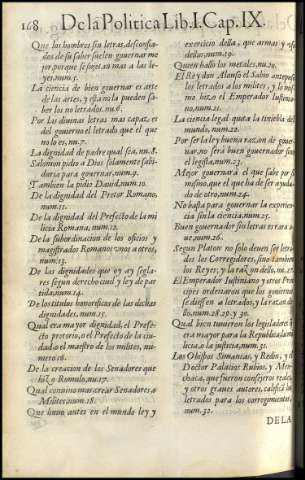 168 De la Politica Lib. I. Cap. IX.
Que los hombres sin letras, desconfia-
dos de su saber suelen gouernar me
jor, porque se sujetan mas a las le-
yes, num. 5.
La ciencia de bien gouernar es arte
de las artes, y esta no la pueden sa-
ber los no letrados, nu. 6.
Por las diuinas letras mas capaz es
del gouierno el letrado que el que
no lo es, nu. 7.
La dignidad de padre qual sea, nu. 8.
Salomon pidio a Dios solamente sabi-
duria para gouernar, num. 9.
Tambien la pidio Dauid, num. 10.
De la dignidad del Pretor Romano,
num. 11.
De la dignidad del Prefecto de la mi
licia Romana, num. 12.
De la subordinacion de los oficios y
magistrados Romanos vnos a otros,
num. 13.
De las dignidades que oy ay segla-
res segun derecho ciuil y ley de par
tida, num. 14.
De los titulos honorificos de las dichas
dignidades, num. 15.
Qual era mayor dignidad, el Prefe-
cto pretorio, o el Prefecto de la ciu-
dad, o el maestro de los milites, nu-
mero 16.
De la creacion de los Senadores que
hizo Romulo, nu. 17.
Qual conuino mas crear Senadores, o
Milites, num. 18.
Que huuo antes en el mundo ley y
exercicio della, que armas y vso
dellas, num. 19.
Quien hallo los metales, nu. 20.
El Rey don Alonso el Sabio antepuso
los letrados a los milites, y lo mis
mo hizo el Emperador Iustinia-
no, num. 21.
La ciencia legal quita la tiniebla del
mundo, num. 22.
Por ser la ley buena razon de gouer-
nar, no sera buen gouernador sino
el legista, num. 23.
Mejor gouernara el que sabe por si
mismo, que el que ha de ser ayuda-
do de otro, num. 24.
No basta para gouernar la experien-
cia sin la ciencia, num. 25.
Buen gouernador sin letras es raro a-
ue, num. 26.
Segun Platon no solo deuen ser letra-
dos los Corregidores, sino tambien
los Reyes, y la razon dello, nu. 27.
El Emperador Iustiniano y otros Prin
cipes ordenaron que los gouiernos
se diessen a letrados, y la razon de-
llo, num. 28. 29. y 30.
Qual bien tuuieron los legisladores
era mayor para la Republica la mi
licia, o la justicia, num. 31.
Los Obispos Simancas, y Redin, y los
Doctor Palacios Rubios, y Men-
chaca, que fueron consejeros reales,
y otros graues autores, califican los
letrados para los corregimientos,
num. 32.
DE LA